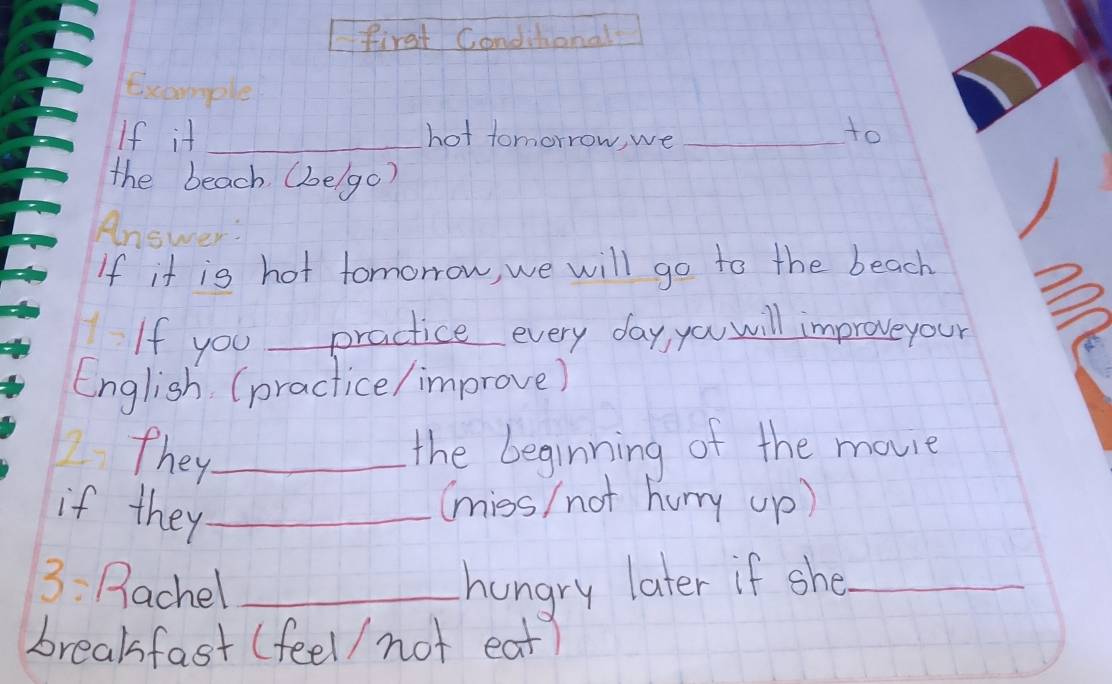 -First Conditional-
Example
If it ________ hot tomorrow, we ________ to
the beach. (be/go)
Answer:
If it is hot tomorrow, we will go to the beach
1- If you practice every day, you will improve your
English. (practice/improve)
2- They ________ the beginning of the movie
if they ________ (miss/not hurry up)
3- Rachel ________ hungry later if she ________
breakfast (feel/not eat)